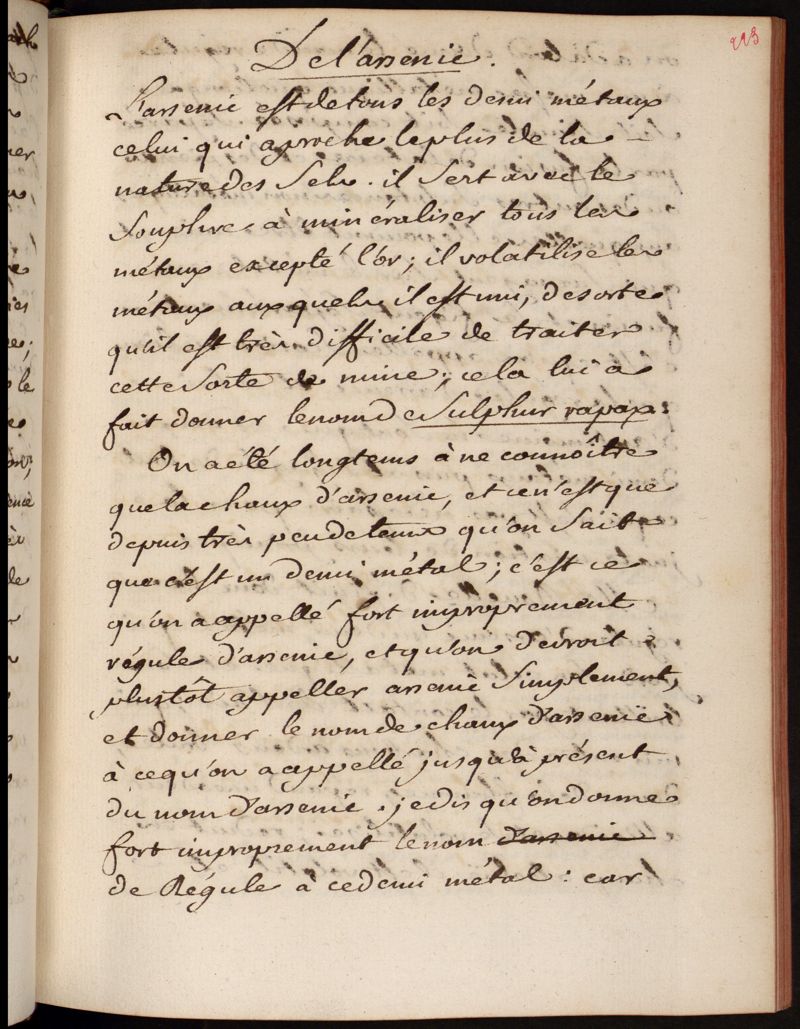 223
De l'arsenic.
L'arsenic est de tous les demi métaux
celui qui aproche le plus de la
nature des Sels. il Sert avec le
Souphre à minéraliser tous les
métaux excepté l'or; il volatilise les
métaux auxquels il est uni, desorte
qu'il est très difficile de traiter
cette Sorte de mine; cela lui a
fait donner le nom de Sulphur rapax.
On a été longtems à ne connoître
que la chaux d'arsenic, et ce n'est que
depuis très peu de tems qu'on Sait
que c'est un demi métal; c'est ce
qu'on a appellé fort improprement
régule d'arsenic, et qu'on devroit
plustôt appeller arsenic Simplement,
et donner le nom de chaux d'arsenic
à ce qu'on a appellé jusqu'à présent
du nom d'arsenic. je dis qu'on donne
fort improprement le nom d'arsenic
de Régule à ce demi métal: car